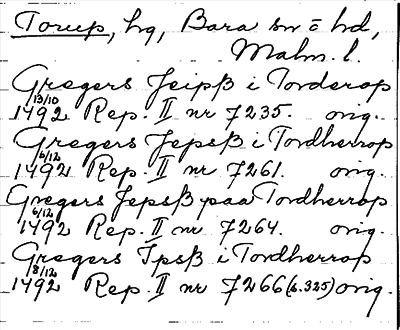 Torup, hg, Bara sn o hd,
Malm. l.
Gregers Jeipß i Torderop
13/10
1492 Rep. II nr 7235. orig.
Gregers Jepsß i Tordherrop
6/12
1492 Rep. II nr 7261. orig.
Gregers Jepsß paa Tordherrop
6/12
1492 Rep. II nr 7264. orig.
Gregers Ipsß i Tordherrop
8/12
1492 Rep. II nr 7266 (6.325) orig.